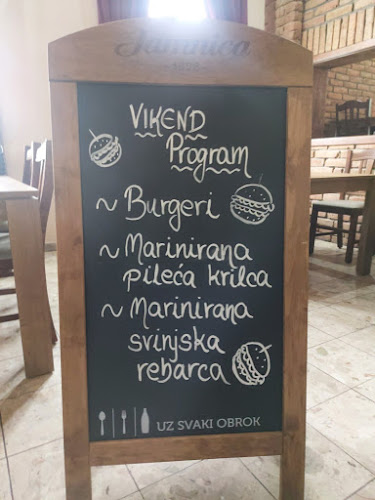 Jamnica
1828
VIKEND
Program
~ Burgeri
~ Marinirana
pileća krilca
~ Marinirana
svinjska
rebarca
UZ SVAKI OBROK